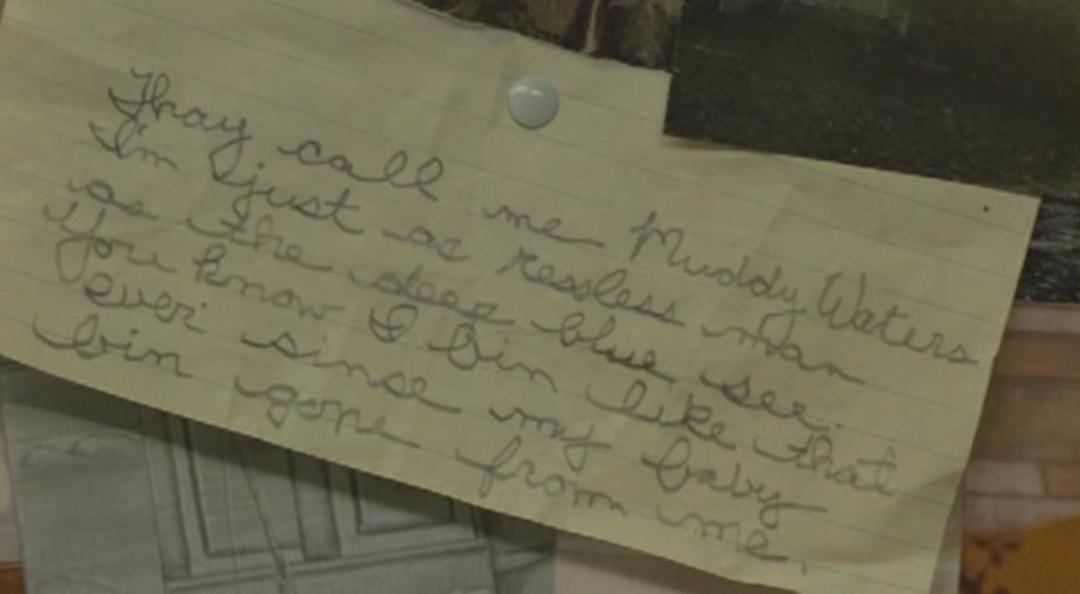 Thay call me Muddy Waters
I'm just as ressless man
as the deep blue see.
You know I bin like that
ever sinse my baby
bin gone from me.